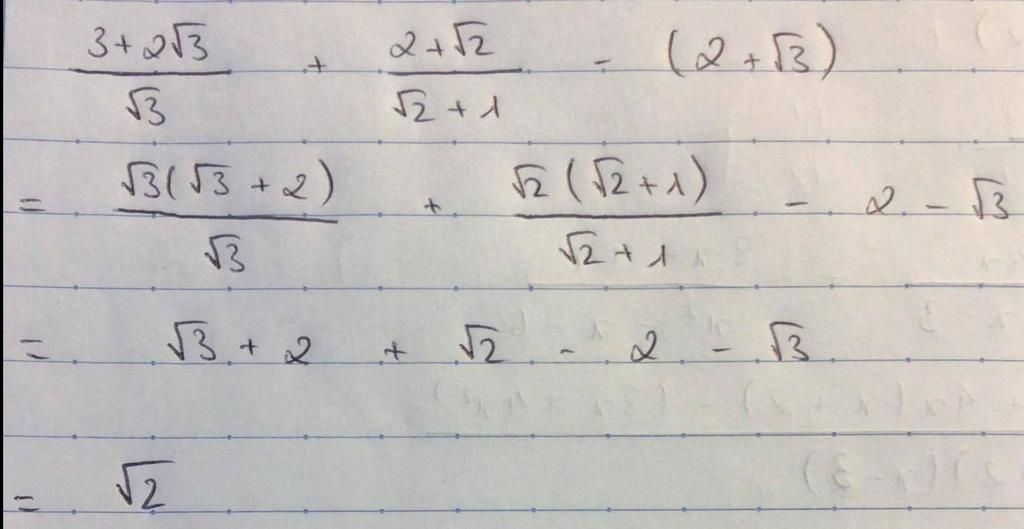 (3 + 2√3)/√3 + (2 + √2)/(√2 + 1) - (2 + √3)
= √3(√3 + 2)/√3 + √2(√2 + 1)/(√2 + 1) - 2 - √3
= √3 + 2 + √2 - 2 - √3
= √2